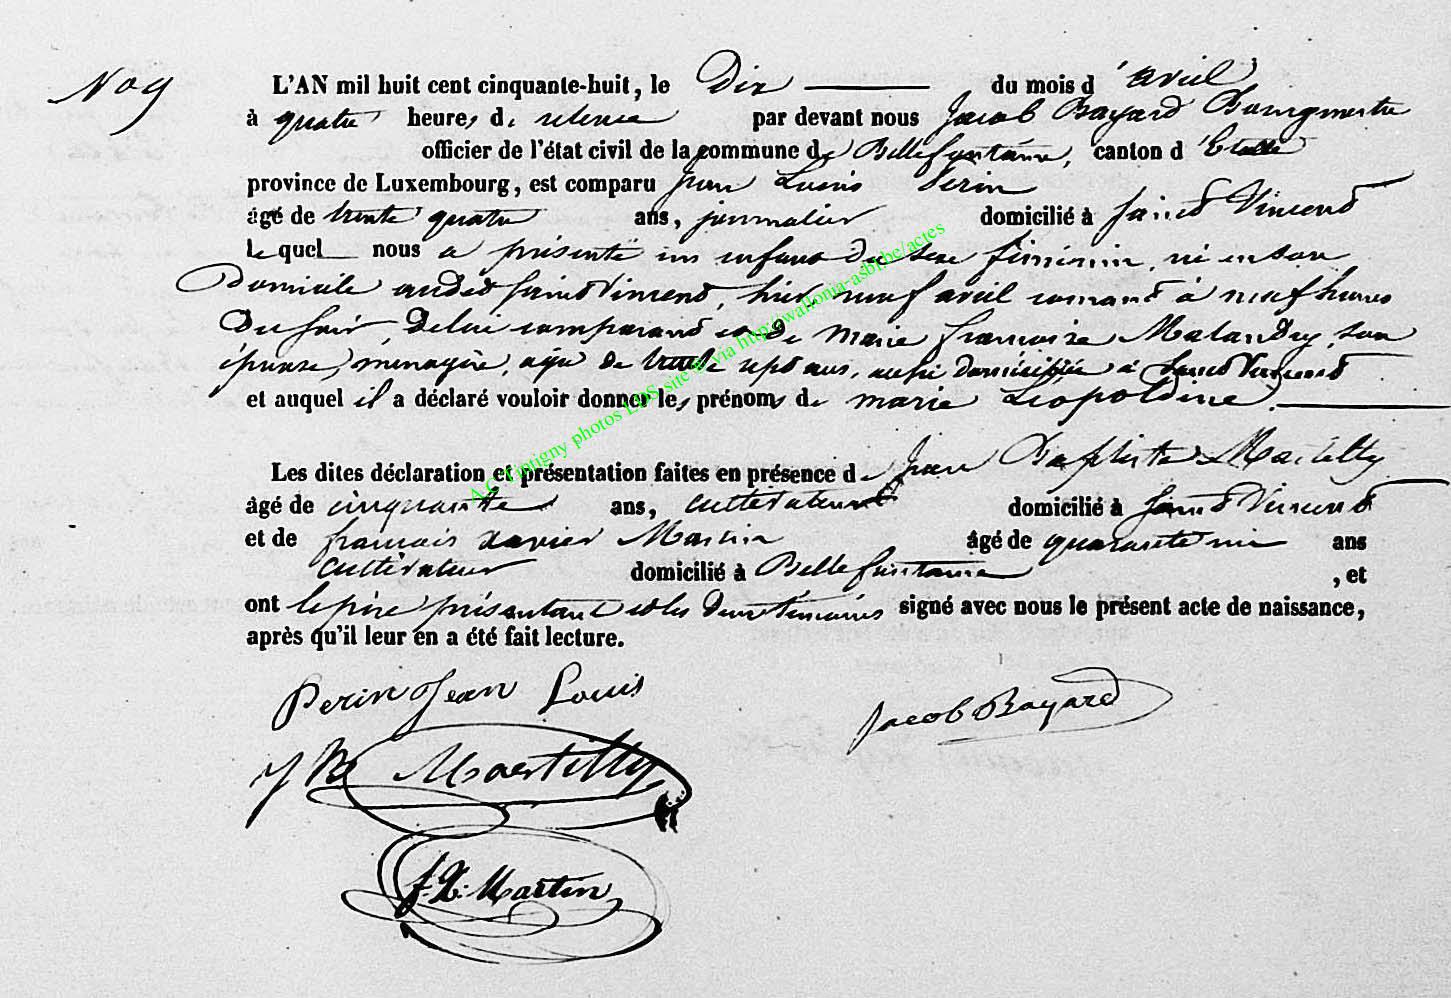 No 9
L'AN mil huit cent cinquante-huit, le Dix du mois d'avril
à quatre heures de relevée par devant nous Jacob Bayard Bourgmestre
officier de l'état civil de la commune de Bellefontaine, canton d'Etalle
province de Luxembourg, est comparu Jean Louis Perin
âgé de trente quatre ans, journalier domicilié à Saint Vincent
lequel nous a présenté un enfant du sexe féminin, né en son
Domicile audit Saint Vincent, hier, neuf avril courant à neuf heures
Du soir De lui comparant et De Marie françoise Malandry, son
épouse, ménagère, agée de trente sept ans, aussi domiciliée à Saint Vincent
et auquel il a déclaré vouloir donner les prénoms de marie Léopoldine.
Les dites déclaration et présentation faites en présence de Jean Baptiste Martilly
âgé de cinquante ans, cultivateur domicilié à Saint Vincent
et de françois xavier Martin âgé de quarante ans
cultivateur domicilié à Bellefontaine, et
ont le père présentant et les deux témoins signé avec nous le présent acte de naissance,
après qu'il leur en a été fait lecture.
Perin Jean Louis
Jacob Bayard
J B Martilly
f. X. Martin
A.C. Tintigny photos LDS, site @ via http://wallonia-asbl.be/actes